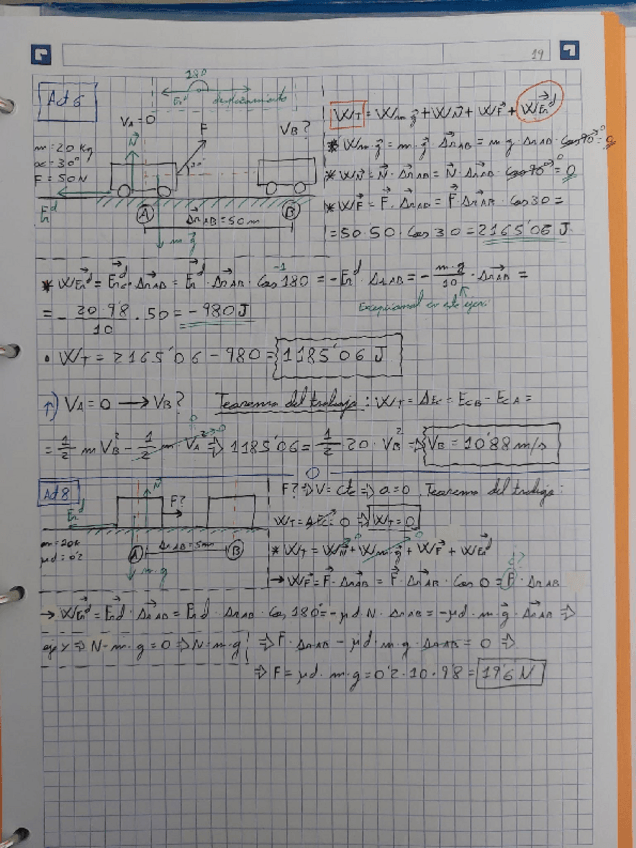 19
Act 6
180
Frd
desplazamiento
VA=0
F
VB?
N
m=20 kg
α=30°
F=50N
30°
Frd
A
ΔrAB=50m
B
m·g
WT = Wm·g + WN + WF + WFrd
* Wm·g = m·g · ΔrAB = m·g · ΔrAB · cos90=0
* WN = N · ΔrAB = N · ΔrAB · cos90=0
* WF = F · ΔrAB = F · ΔrAB · cos30 =
= 50·50·cos30 = 2165'06 J
* WFrd = Frd · ΔrAB = Fr · ΔrAB · cos 180 = -Fr · ΔrAB = - m·g/10 · ΔrAB =
= - 20·9'8/10 · 50 = -980J
· WT = 2165'06 - 980 = 1185'06 J
VA=0 → VB? Teorema del trabajo: WT = ΔEc = EcB - EcA =
= 1/2 m VB² - 1/2 m VA² ⇒ 1185'06 = 1/2 20 · VB² ⇒ VB = 10'88 m/s
Act 8
Frd
N
F?
m=20k
μd=0'2
A
ΔrAB=5m
B
m·g
F? ⇒ V=cte ⇒ a=0 Teorema del trabajo:
WT = ΔEc = 0 ⇒ WT=0
* WT = WN + Wm·g + WF + WFrd
→ WF = F · ΔrAB = F · ΔrAB · cos 0 = F · ΔrAB
→ WFrd = Frd · ΔrAB = Frd · ΔrAB · cos 180 = -μd N · ΔrAB = -μd · m·g · ΔrAB ⇒
eje Y ⇒ N-m·g=0 ⇒ N=m·g
⇒ F · ΔrAB - μd · m·g · ΔrAB = 0 ⇒
⇒ F = μd · m·g = 0'2·10·9'8 = 19'6 N